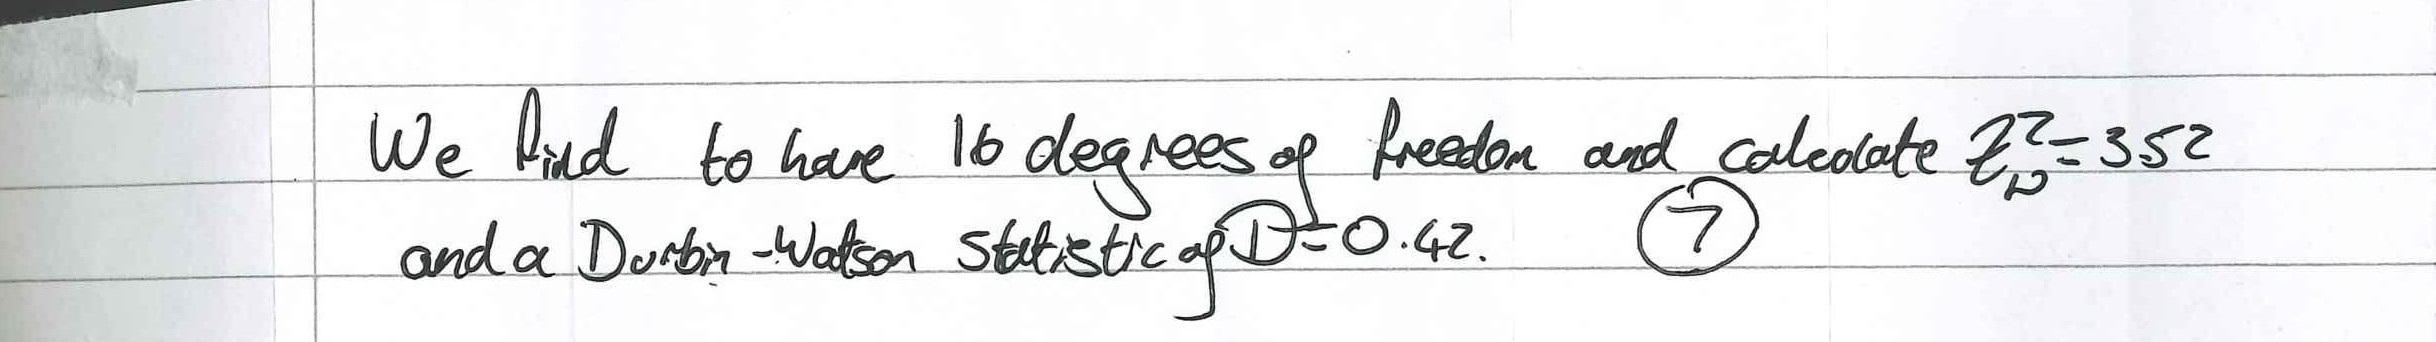 We find to have 16 degrees of freedom and calculate χ²ᵥ=352
and a Durbin-Watson statistic of D=0.42. 7